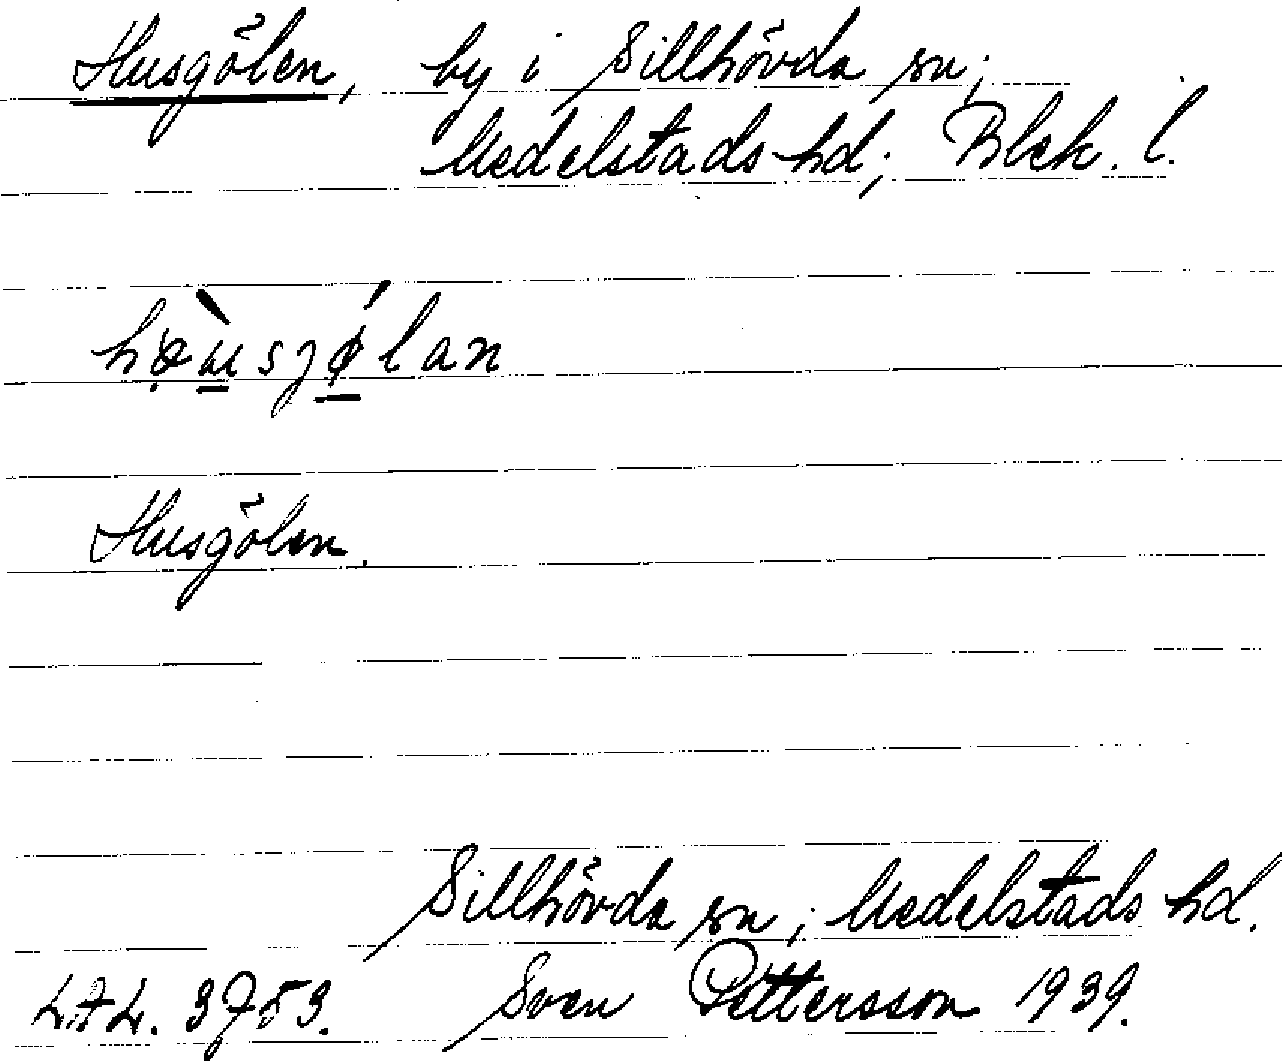 Husgölen, by i Sillhövda sn;
Medelstads hd; Blek. l.
hø̣̀u̲sjǿ̲lan
Husgölen.
Sillhövda sn; Medelstads hd.
L.A.L. 3953. Sven Pettersson 1939.